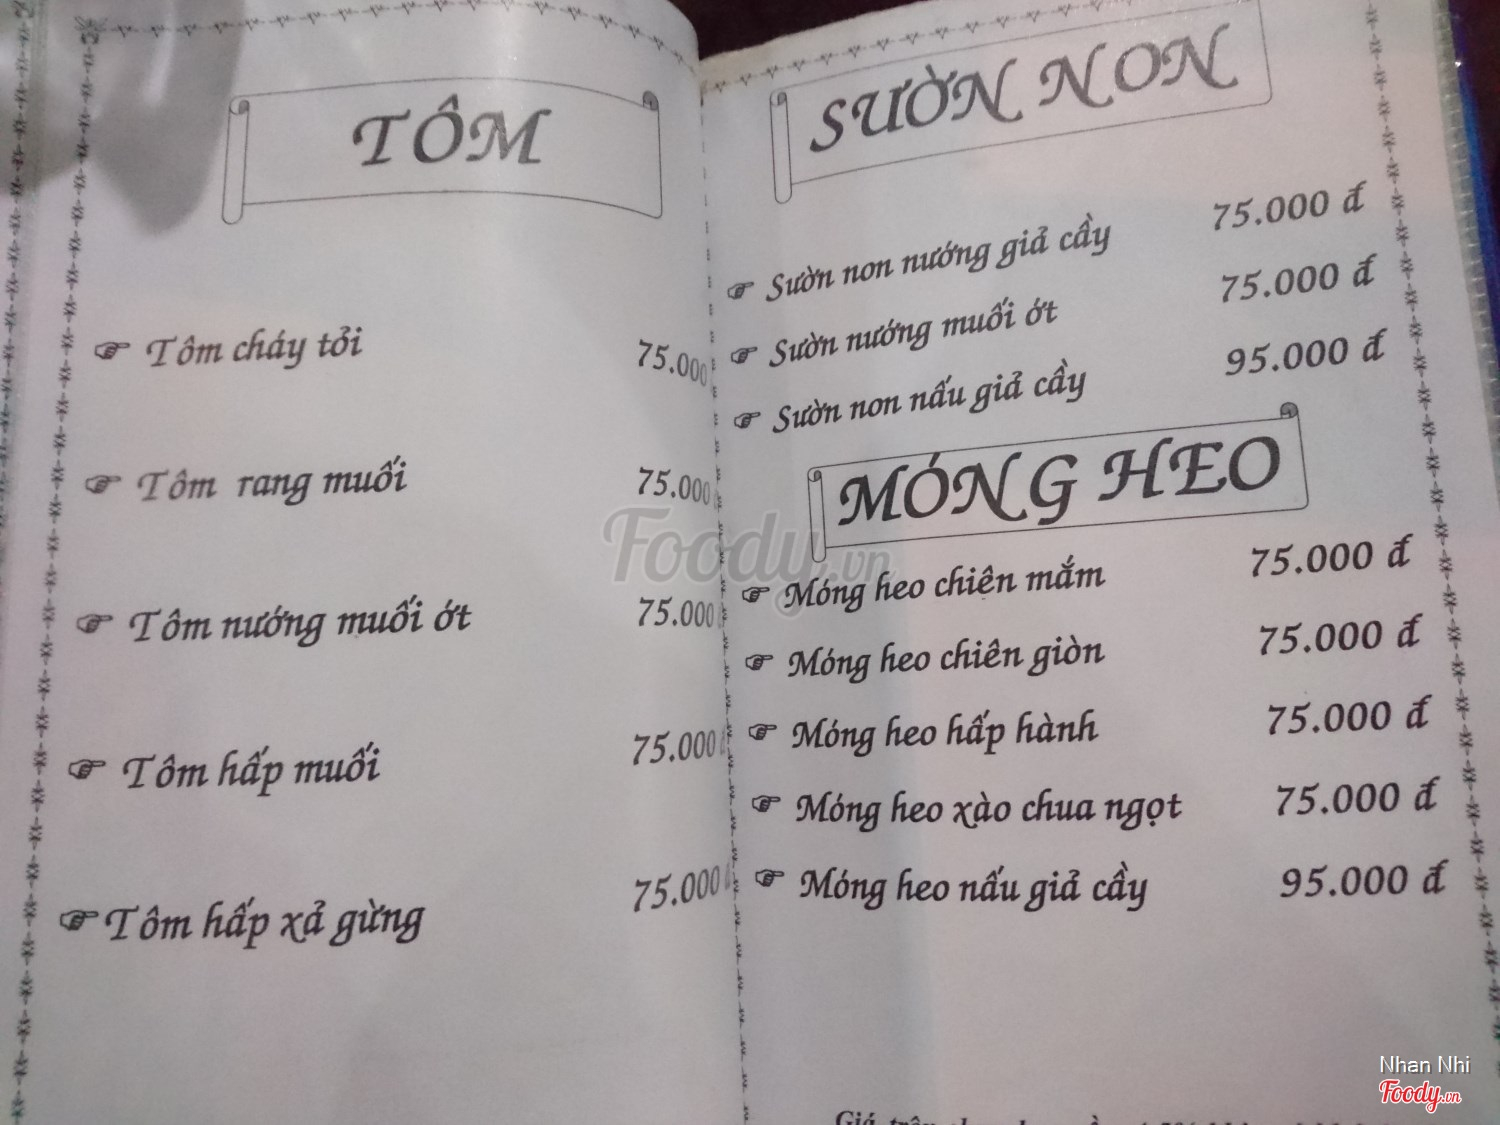 TÔM
Tôm cháy tỏi 75.000
Tôm rang muối 75.000
Tôm nướng muối ớt 75.000
Tôm hấp muối 75.000
Tôm hấp xả gừng 75.000
SƯỜN NON
Sườn non nướng giả cầy 75.000 đ
Sườn nướng muối ớt 75.000 đ
Sườn non nấu giả cầy 95.000 đ
MÓNG HEO
Móng heo chiên mắm 75.000 đ
Móng heo chiên giòn 75.000 đ
Móng heo hấp hành 75.000 đ
Móng heo xào chua ngọt 75.000 đ
Móng heo nấu giả cầy 95.000 đ
Giá trên
Foody.vn
Nhan Nhi
Foody.vn